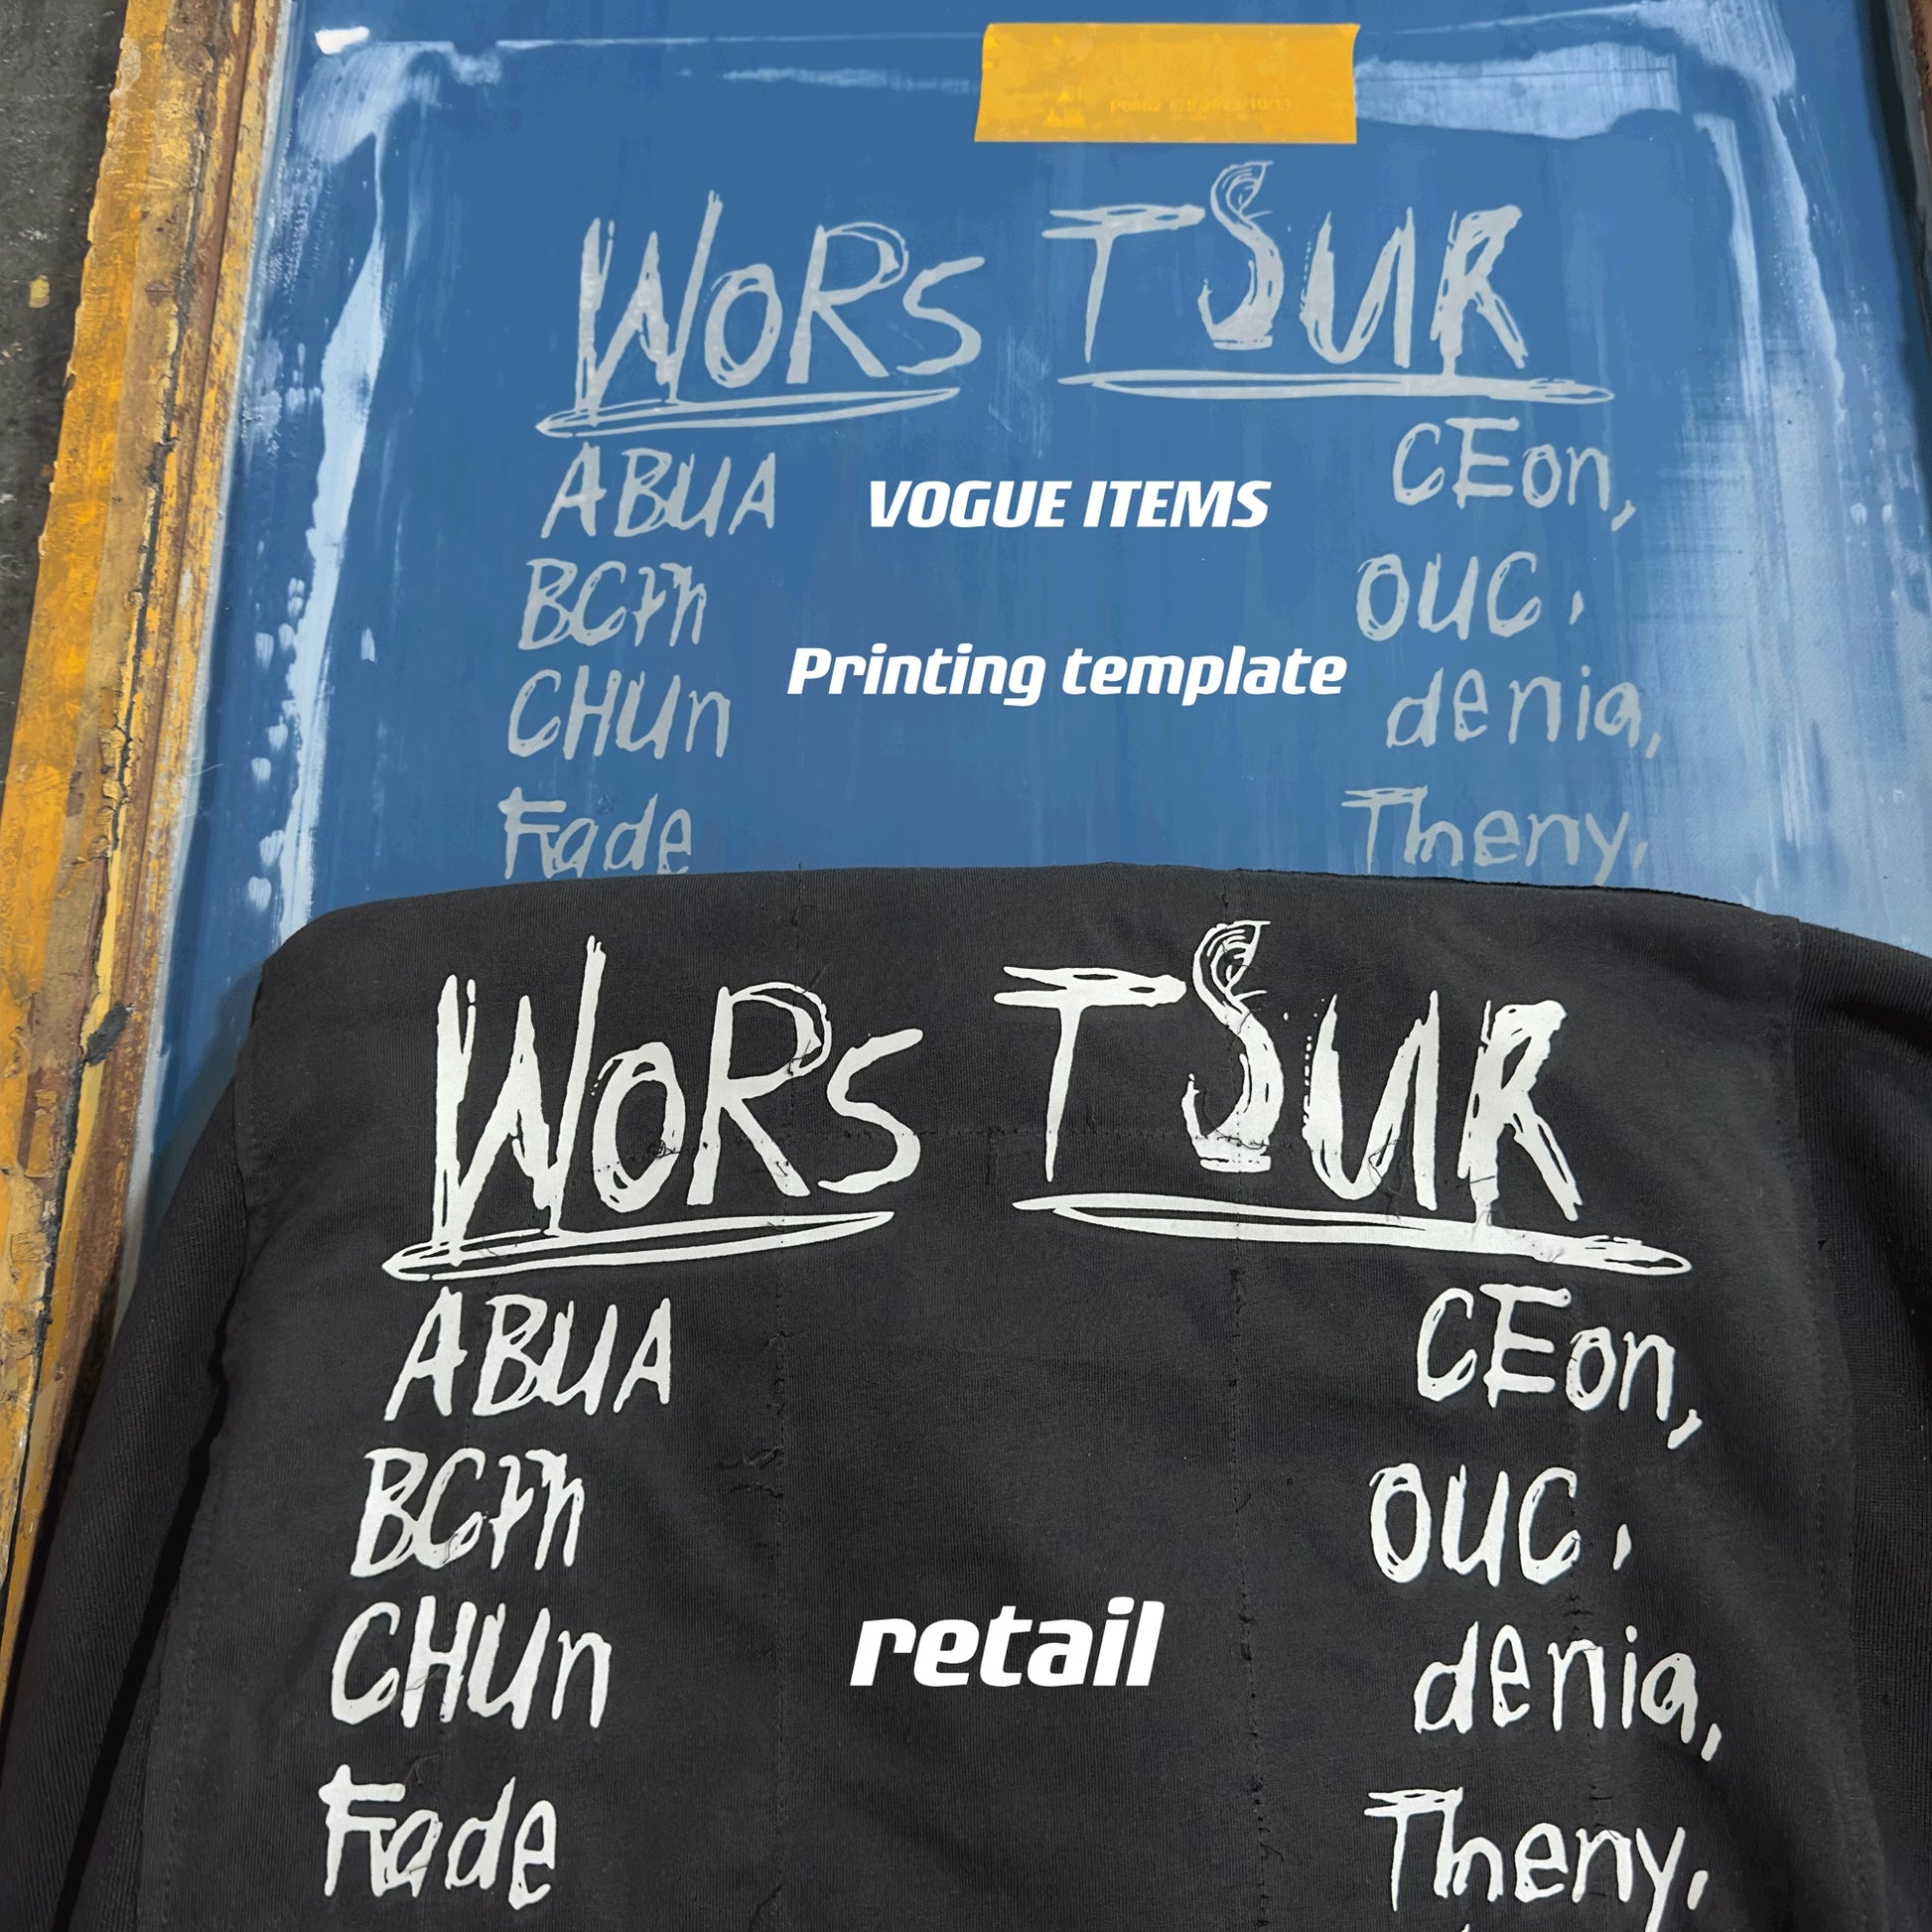 WoRs TSuR
ABUA CEon,
VOGUE ITEMS
BCTh OUC,
Printing template
CHUn denia,
Fade Theny,
WoRs TSuR
ABUA CEon,
BCTh OUC,
CHUn denia,
retail
Fade Theny,